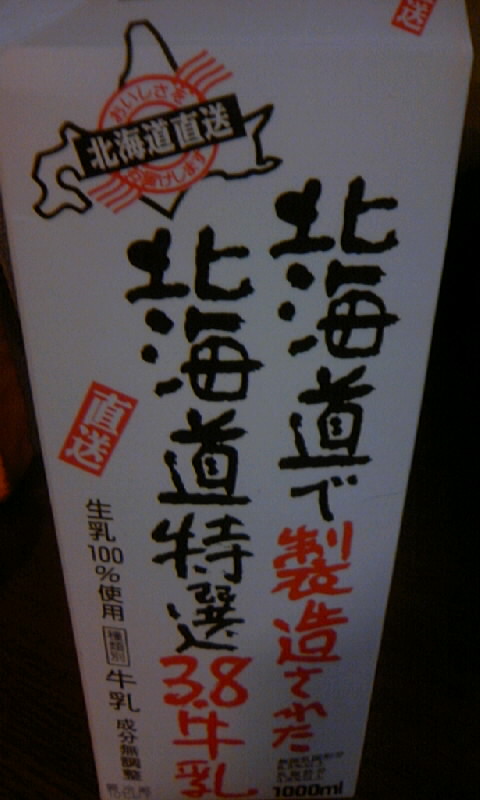 直送
おいしさを
北海道直送
お届けします
北海道で製造された
北海道特選3.8牛乳
直送
生乳100%使用 種類別 牛乳 成分無調整
1000ml